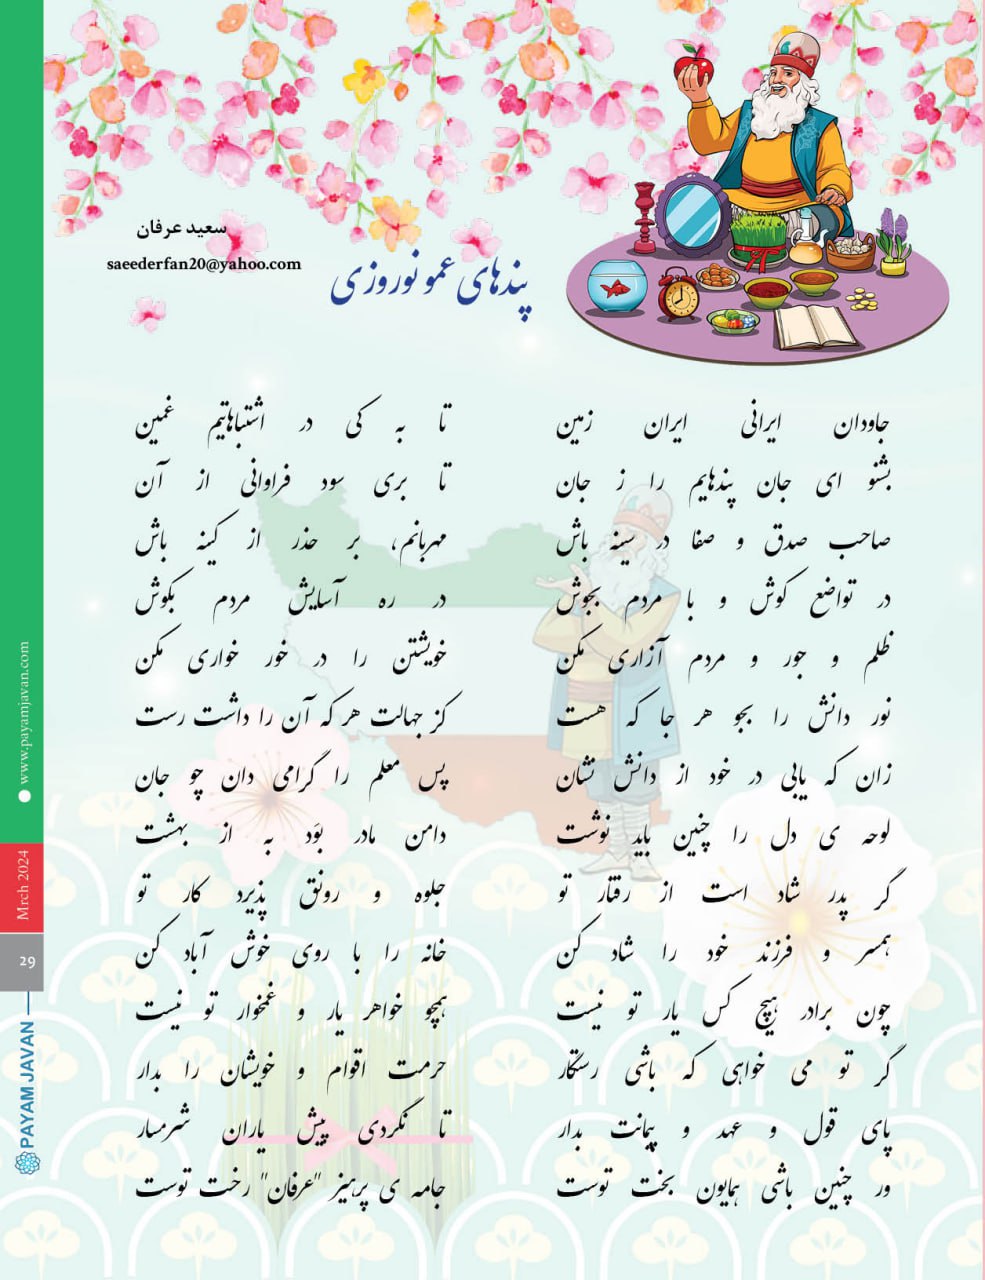 سعید عرفان
saeederfan20@yahoo.com
پندهای عمو نوروزی
جاودان ایرانی ایران زمین تا به کی در اشتباهاتیم غمین
بشنو ای جان پندهایم را ز جان تا بری سود فراوانی از آن
صاحب صدق و صفا در سینه باش مهربانم، بر حذر از کینه باش
در تواضع کوش و با مردم بجوش در ره آسایش مردم بکوش
ظلم و جور و مردم آزاری مکن خویشتن را در خور خواری مکن
نور دانش را بجو هر جا که هست کز جهالت هر که آن را داشت رست
زان که یابی در خود از دانش نشان پس معلم را گرامی دان چو جان
لوحه ی دل را چنین باید نوشت دامن مادر بوَد به از بهشت
گر پدر شاد است از رفتار تو جلوه و رونق پذیرد کار تو
همسر و فرزند خود را شاد کن خانه را با روی خوش آباد کن
چون برادر هیچ کس یار تو نیست همچو خواهر یار و غمخوار تو نیست
گر تو می خواهی که باشی رستگار حرمت اقوام و خویشان را بدار
پای قول و عهد و پیمانت بدار تا نگردی پیش یاران شرمسار
ور چنین باشی همایون بخت توست جامه ی پرهیز "عرفان" رخت توست
www.payamjavan.com
Mrch 2024
29
PAYAM JAVAN